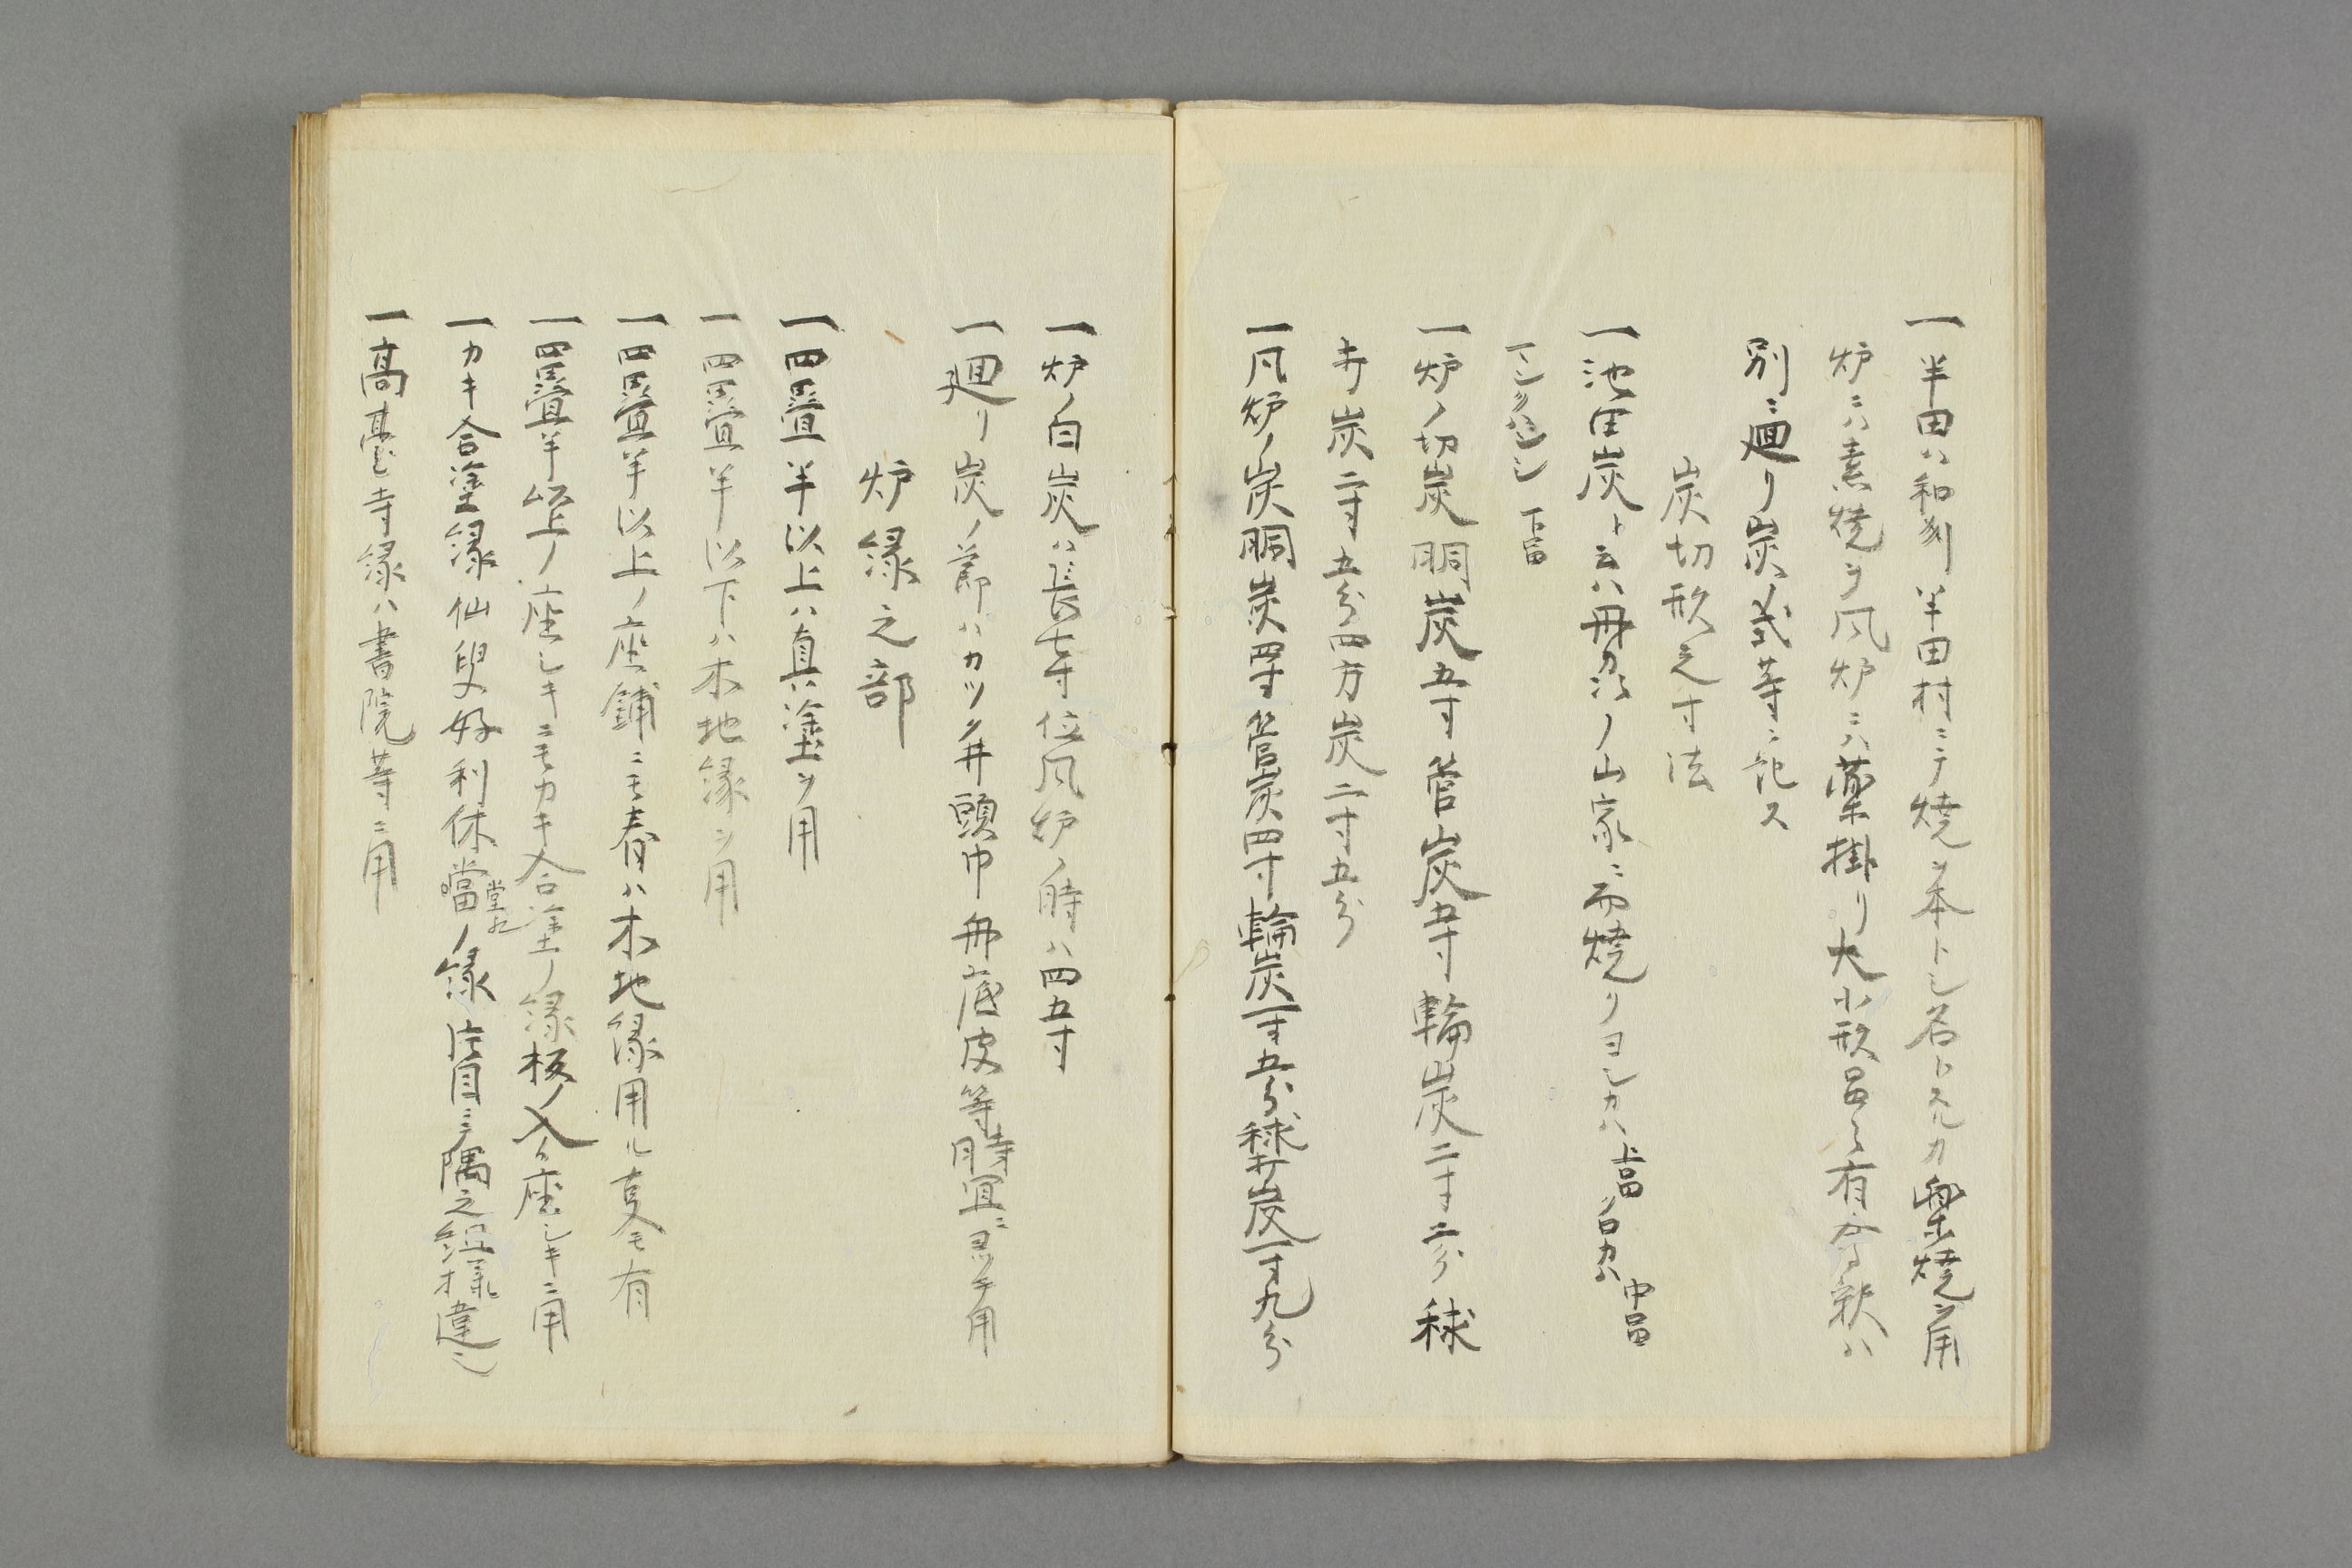 一半田ハ和刕半田村ニテ焼ヲ本トシ名トスルカ楽焼ヲ用
炉ニハ素焼ヲ風炉ニハ薬掛リ大小形品々有
別ニ廻リ炭ノ式等ニ記ス
炭切形之寸法
一池田炭ト云ハ丹ノ山家ニ而焼リヨシカハ上品白カハ中品
下品
一炉ノ切炭胴炭五寸管炭五寸輪炭二寸二分毬
打炭二寸五分四方炭二寸五分
一風炉ノ炭胴炭四寸管炭四寸輪炭一寸五分毬打炭一寸九分
一炉ノ白炭ハ長七寸位風炉ノ時ハ四五寸
一廻リ炭ノ節ハカツタ井頭巾舟底皮等時宜ニヨツテ用
炉縁之部
一四畳半以上ハ真塗ヲ用
一四畳半以下ハ木地縁ヲ用
一四畳半以上ノ座鋪ニモ春ハ木地縁用ル叓モ有
一四畳半以上ノ座シキニモカキ合塗ノ縁板ノ入ル座シキニ用
一カキ合塗縁仙叟好利休當ノ縁ハ貫ニテ隅之組様違シ
一高臺寺縁ハ書院等ニ用